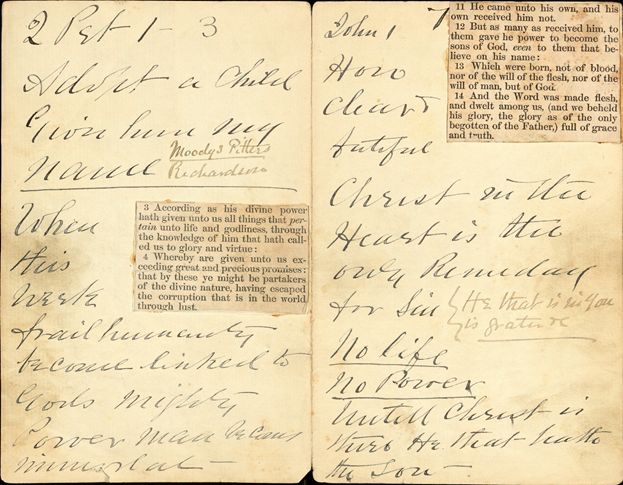 2 Pet 1 - 3
Adopt a Child
Give him my
name
Moodys
Richardson
3 According as his divine power
hath given unto us all things that per-
tain unto life and godliness, through
the knowledge of him that hath call-
ed us to glory and virtue:
4 Whereby are given unto us ex-
ceeding great and precious promises:
that by these ye might be partakers
of the divine nature, having escaped
the corruption that is in the world
through lust.
When
this
Weak
frail humanity
become linked to
Gods mighty
Power man becoms
immortal -
John 1
11 He came unto his own, and his
own received him not.
12 But as many as received him, to
them gave he power to become the
sons of God, even to them that be-
lieve on his name:
13 Which were born, not of blood,
nor of the will of the flesh, nor of the
will of man, but of God.
14 And the Word was made flesh,
and dwelt among us, (and we beheld
his glory, the glory as of the only
begotten of the Father,) full of grace
and truth.
How
clear &
Christ in the
Heart is the
only Remeday
for Sin
He that is in You
is
No life
No Power
Untill Christ is
there He that hath
the Son -